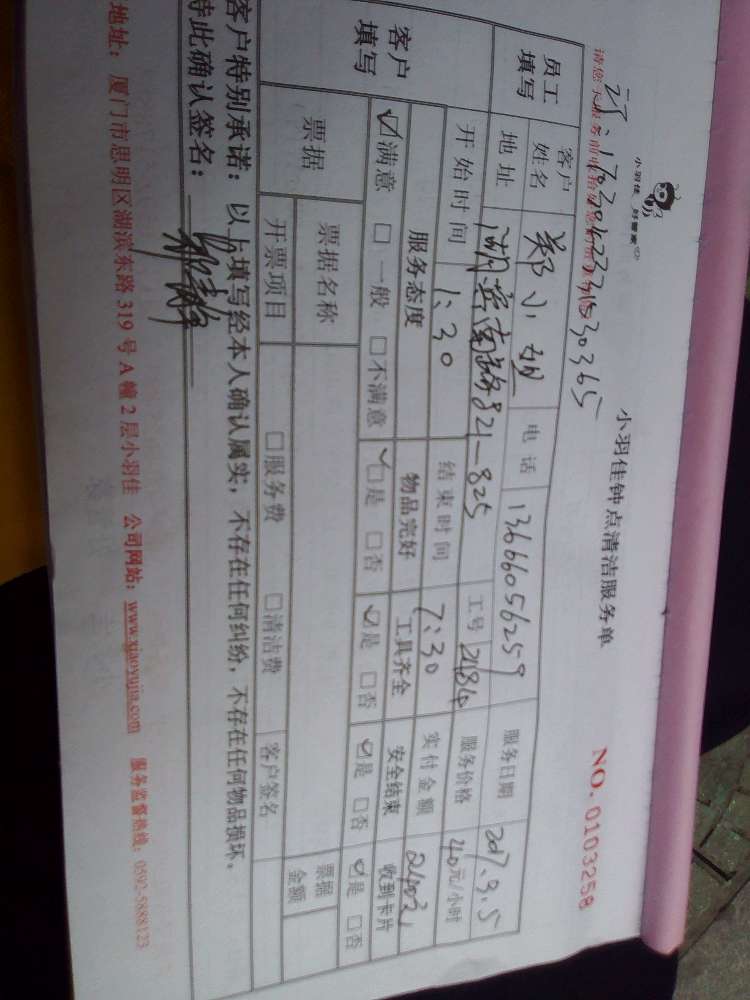 小羽佳 好管家
小羽佳钟点清洁服务单
NO. 0103258
员工填写
客户姓名 郑小姐 电话 13666056259 服务日期 2017.3.5
地址 湖滨南路821-825 工号 2484 服务价格 40元/小时
开始时间 1:30 结束时间 7:30 实付金额 240元
客户填写
服务态度 物品完好 工具齐全 安全结束 收到卡片
☑满意 □一般 □不满意 ☑是 □否 ☑是 □否 ☑是 □否 ☑是 □否
票据 票据名称 票据金额
开票项目 □服务费 □清洁费 客户签名
客户特别承诺：以上填写经本人确认属实，不存在任何纠纷，不存在任何物品损坏。
特此确认签名：
地址：厦门市思明区湖滨东路319号A幢2层小羽佳 公司网站：www.xiaoyujia.com 服务监督热线：0592-5888123